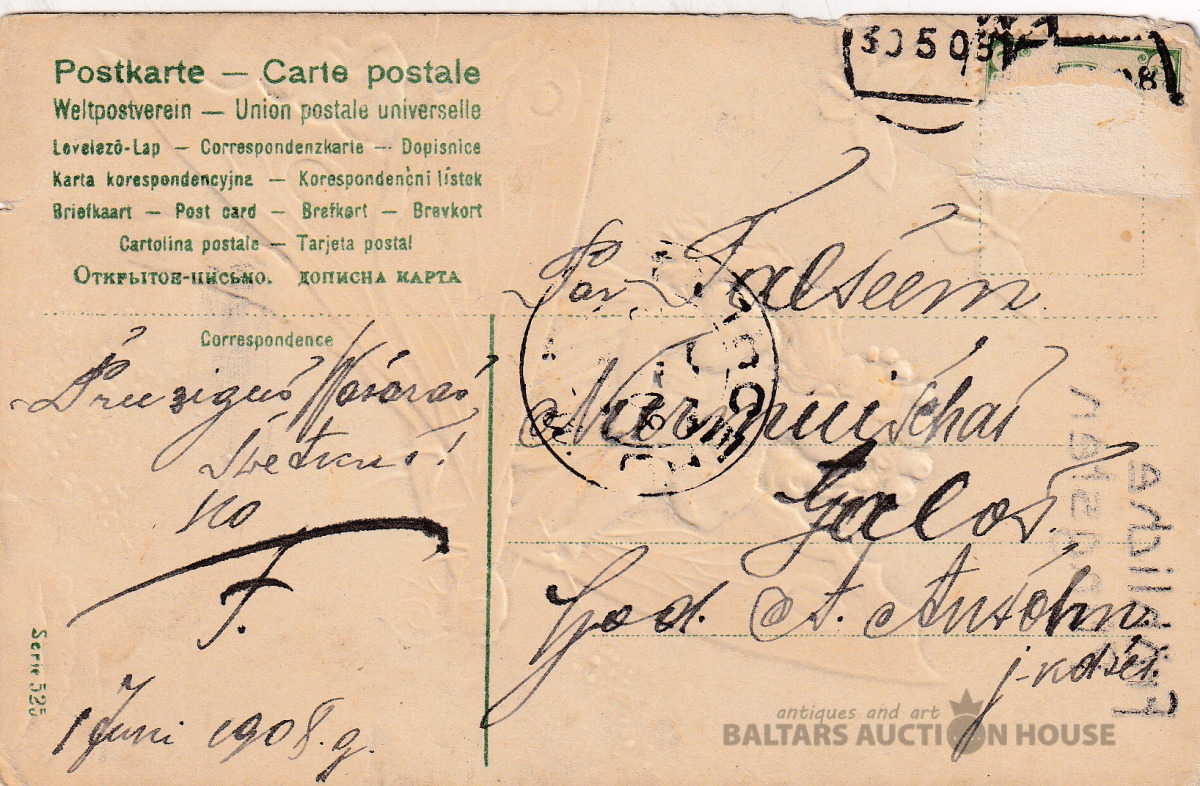 Postkarte — Carte postale
Weltpostverein — Union postale universelle
Levelező-Lap — Correspondenzkarte — Dopisnice
Karta korespondencyjna — Korespondenčni lístek
Briefkaart — Post card — Brefkort — Brevkort
Cartolina postale — Tarjeta postal
Открытое-письмо. дописна карта
Correspondence
Preezigus Wasaras
Swetkus!
no
F.
1 Juni 1908. g.
Serie 525
30 5 08
08
Par Talseem
Nurmuischas
God. A. Ansohn
j-kdsei.
antiques and art
BALTARS AUCTION HOUSE